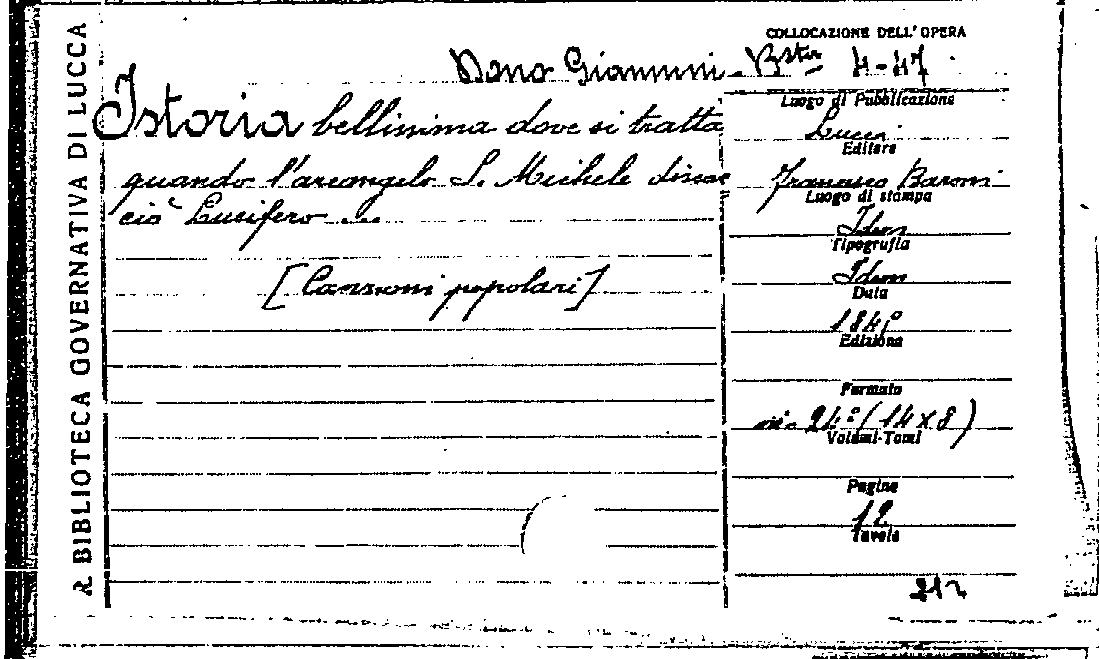 R BIBLIOTECA GOVERNATIVA DI LUCCA
COLLOCAZIONE DELL'OPERA
Dono Giannini - Bsta 4-47
Istoria bellissima dove si tratta
quando l'arcangelo S. Michele discac
ciò Lucifero ...
[Canzoni popolari]
Luogo di Pubblicazione
Lucca
Editore
Francesco Baroni
Luogo di stampa
Idem
Tipografia
Idem
Data
Edizione
Formato
in- 24° (14x8)
Volumi-Tomi
Pagine
12
Tavole